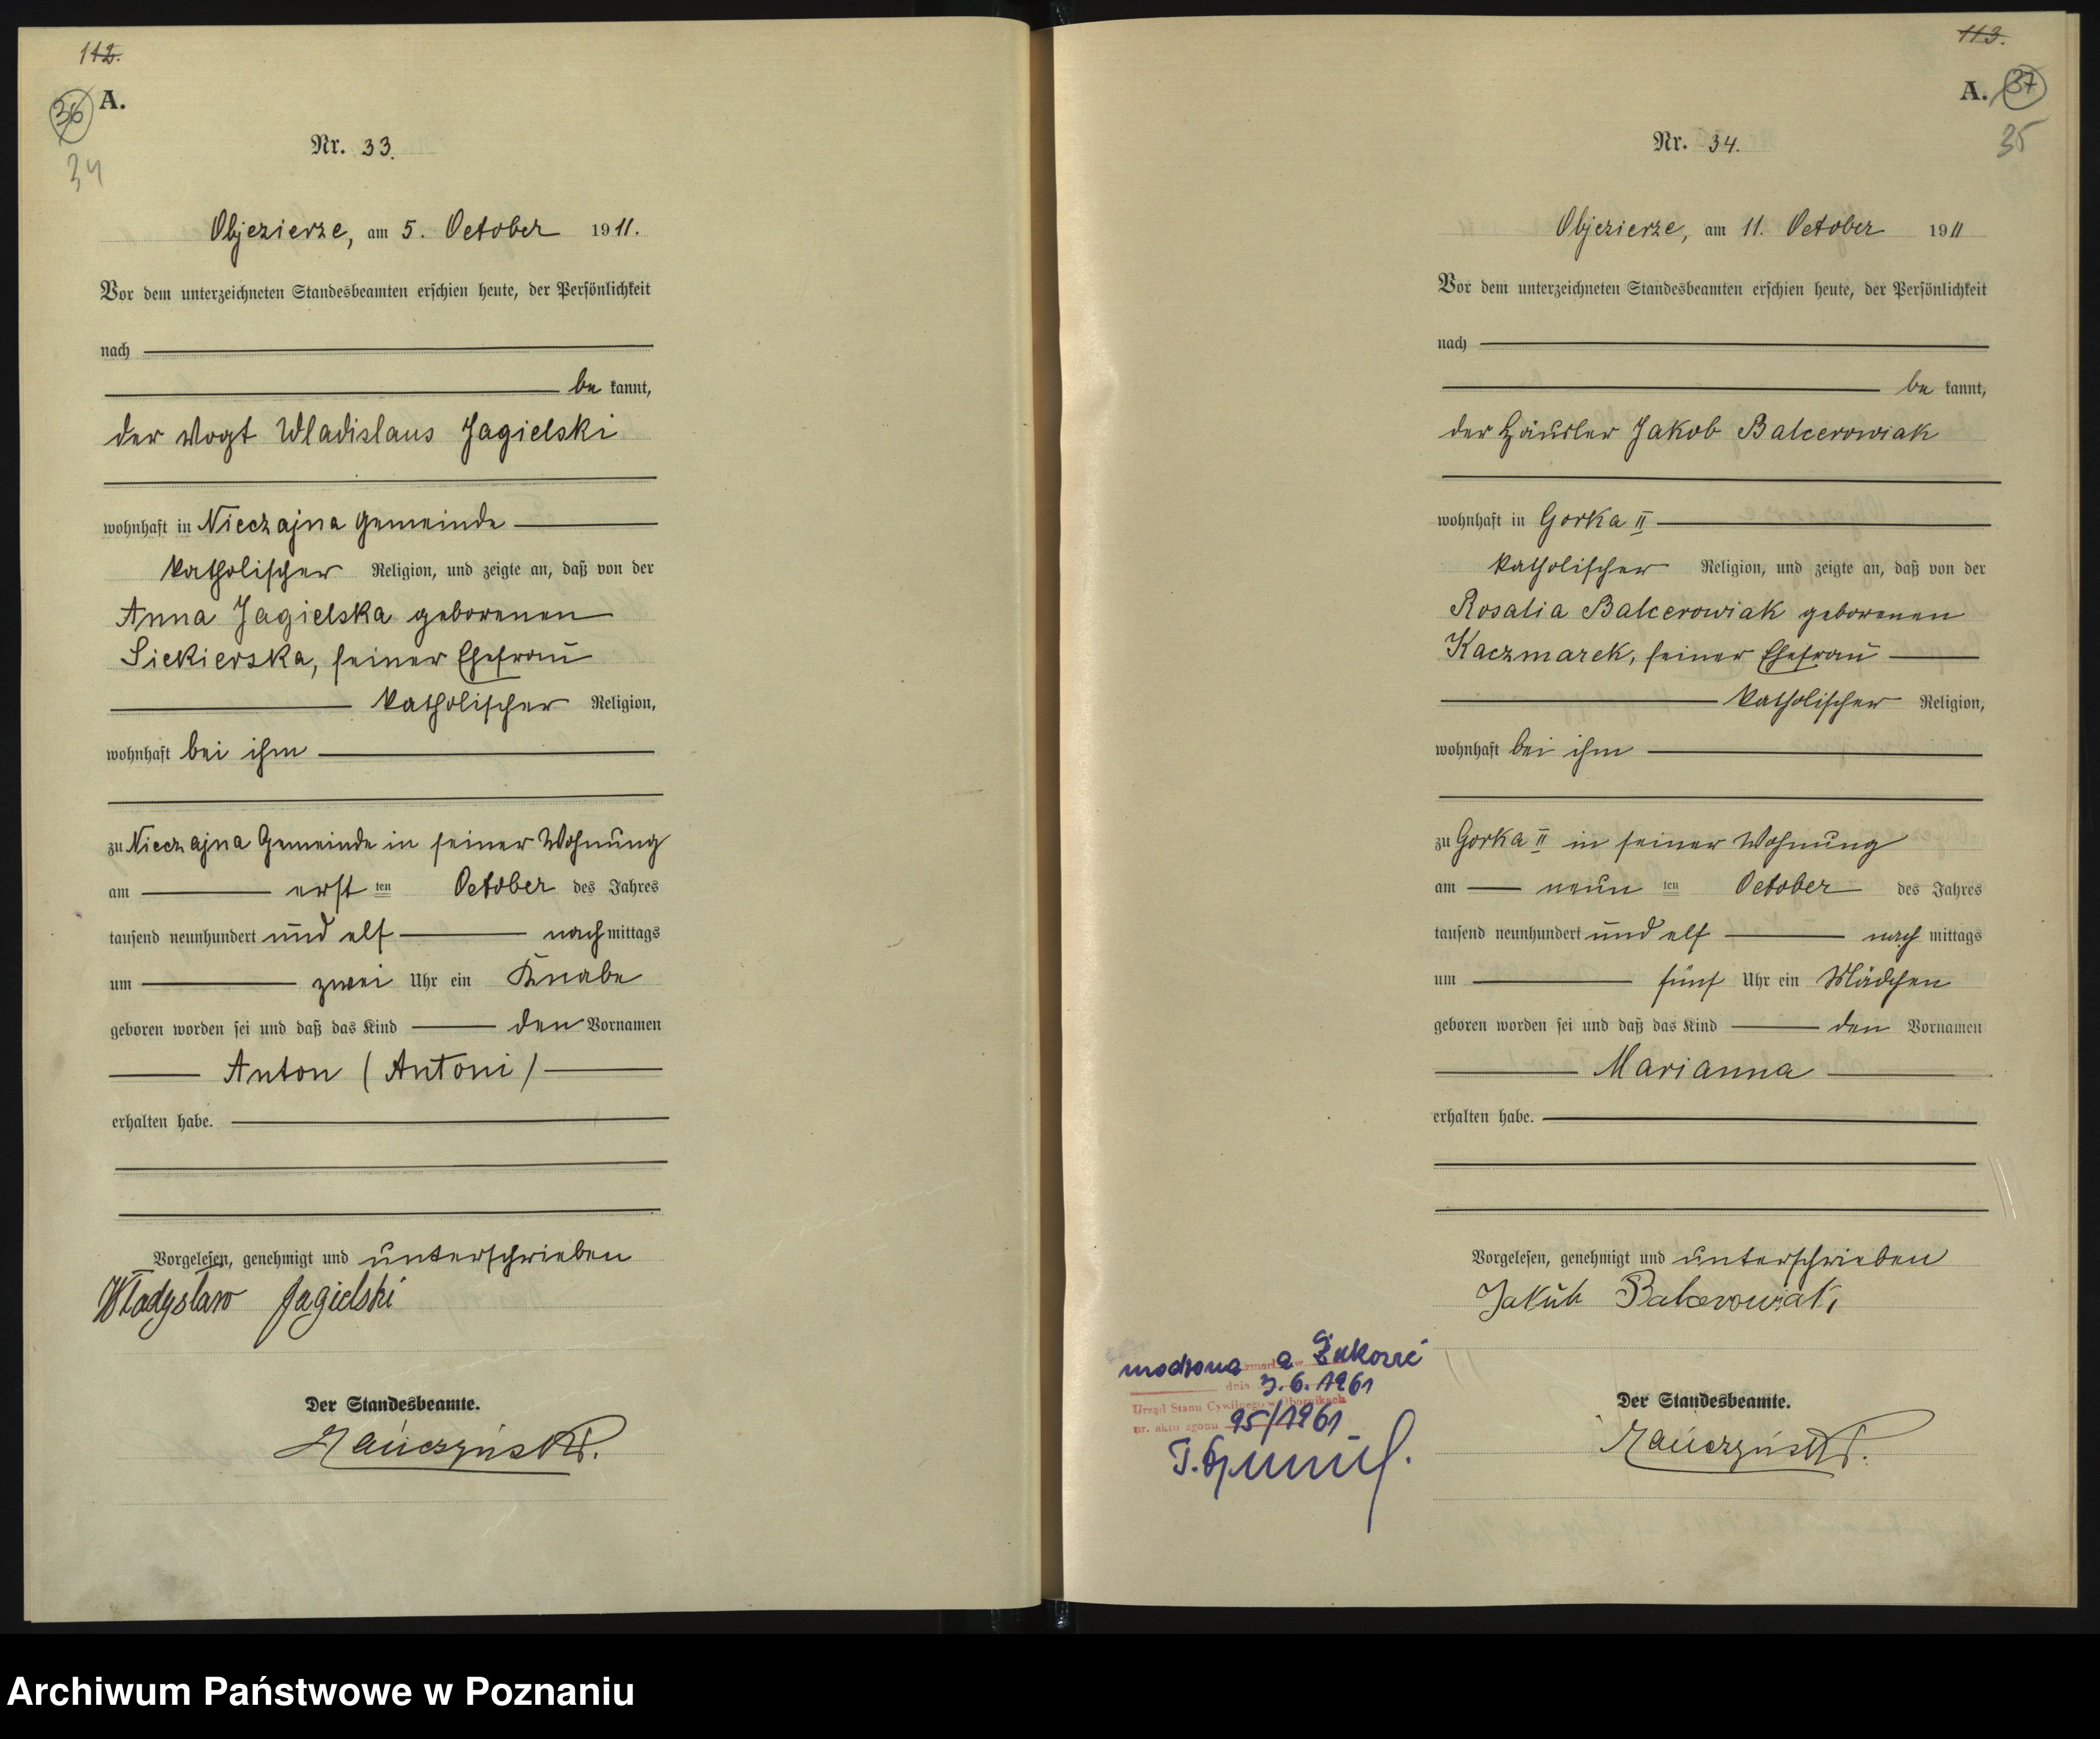 112.
36
A.
34
Nr. 33.
Objezierze, am 5. October 1911.
Vor dem unterzeichneten Standesbeamten erschien heute, der Persönlichkeit
nach
be kannt,
der Vogt Wladislaus Jagielski
wohnhaft in Nieczajna Gemeinde
katholischer Religion, und zeigte an, daß von der
Anna Jagielska geborenen
Siekierska, seiner Ehefrau
katholischer Religion,
wohnhaft bei ihm
zu Nieczajna Gemeinde in seiner Wohnung
am erst ten October des Jahres
tausend neunhundert und elf nach mittags
um zwei Uhr ein Knabe
geboren worden sei und daß das Kind den Vornamen
Anton (Antoni)
erhalten habe.
Vorgelesen, genehmigt und unterschrieben
Władysław Jagielski
Der Standesbeamte.
113.
A. 37
35
Nr. 34.
Objezierze, am 11. October 1911
Vor dem unterzeichneten Standesbeamten erschien heute, der Persönlichkeit
nach
be kannt,
der Häusler Jakob Balcerowiak
wohnhaft in Gorka II
katholischer Religion, und zeigte an, daß von der
Rosalia Balcerowiak geborenen
Kaczmarek, seiner Ehefrau
katholischer Religion,
wohnhaft bei ihm
zu Gorka II in seiner Wohnung
am neun ten October des Jahres
tausend neunhundert und elf nach mittags
um fünf Uhr ein Mädchen
geboren worden sei und daß das Kind den Vornamen
Marianna
erhalten habe.
Vorgelesen, genehmigt und unterschrieben
Jakub Balcerowiak
dnia 3.6.1961
Urząd Stanu Cywilnego w Obornikach
nr. aktu zgonu 95/1961
Der Standesbeamte.
Archiwum Państwowe w Poznaniu